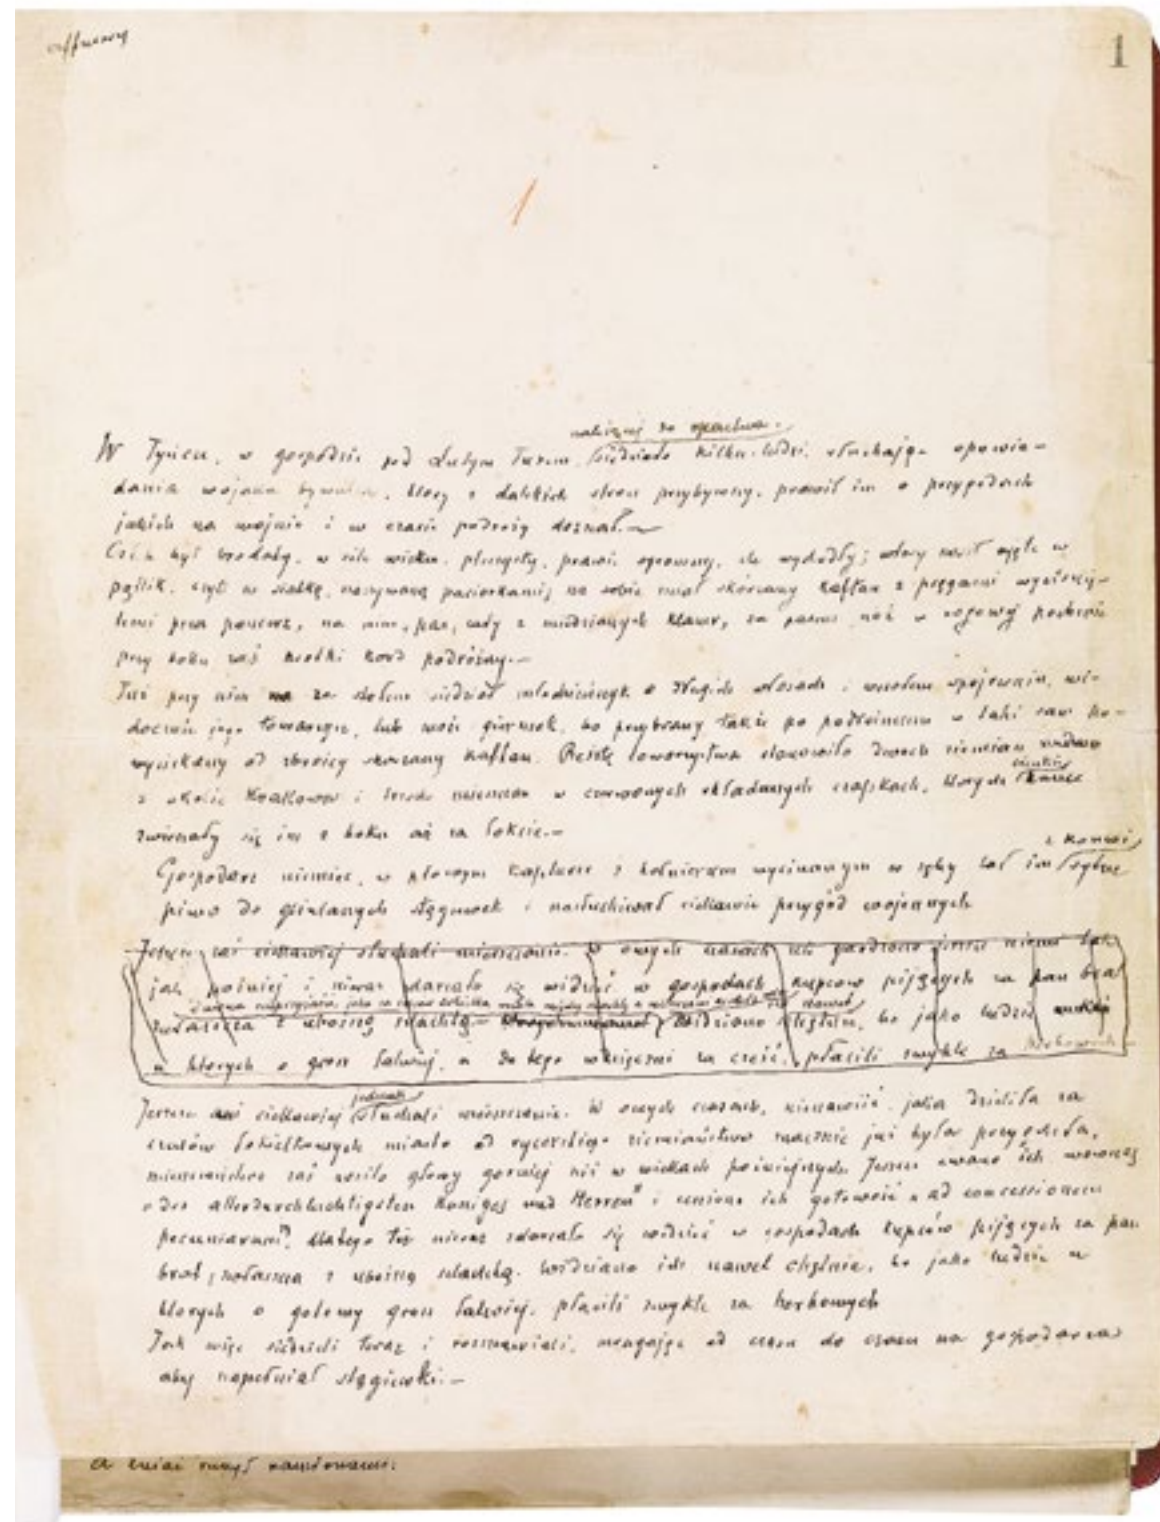 1
należącej do opactwa.
W Tyńcu, w gospodzie pod Lutym Turem, siedziało kilku ludzi, słuchając opowia-
dania wojaka bywalca, który z dalekich stron przybywszy, prawił im o przygodach
jakich na wojnie i w czasie podróży doznał.—
Człek był brodaty, w sile wieku, pleczysty, prawie ogromny, ale wychudły; włosy nosił ujęte w
pątlik, czyli w siatkę, naszywaną paciorkami; na sobie miał skórzany kaftan z pręgami wyciśnię-
temi przez pancerz, na nim, pas, cały z miedzianych klamr, za pasem nóż w rogowej pochwie
przy boku zaś krótki kord podróżny.—
Tuż przy nim za stołem siedział młodzieńczyk o długich włosach i wesołem spojrzeniu, wi-
docznie jego towarzysz, lub może giermek, bo przybrany także po podróżnemu w taki sam po-
wyciskany od zbroicy skórzany kaftan. Resztę towarzystwa stanowiło dwóch ziemian
cienkie
z okolic Krakowa i trzech mieszczan w czerwonych składanych czapkach, których końce
zwieszały się im z boku aż na łokcie.—
z konwi
Gospodarz niemiec, w płowym kapturze z kołnierzem wycinanym w zęby lał im sytne
piwo do glinianych stągiewek i nasłuchiwał ciekawie przygód wojennych
Jeszcze zaś ciekawiej słuchali mieszczanie. W owych czasach nie gardzono jeszcze niemi tak
jak później i nieraz zdarzało się widzieć w gospodach kupców pijących za pan brat
nawet
zwłaszcza z uboższą szlachtą— Widziano chętnie, bo jako ludzie
u których o grosz łatwiej, a do tego wdzięczni za cześć, płacili zwykle za herbowych—
jednak
Jeszcze ciekawiej słuchali mieszczanie. W owych czasach, nienawiść, jaka dzieliła za
czasów Łokietkowych miasto od rycerskiego ziemiaństwa znacznie już była przygasła,
mieszczaństwo zaś nosiło głowy górniej niż w wiekach późniejszych. Jeszcze zwano ich wówczas
"des allerdurchluchtigsten Koniges und Herren" i ceniono ich gotowość "ad concessionem
pecuniarum", dlatego też nieraz zdarzało się widzieć w gospodach kupców pijących za pan
brat, zwłaszcza z uboższą szlachtą. Widziano ich nawet chętnie, bo jako ludzie u
których o gotowy grosz łatwiej, płacili zwykle za herbowych
Tak więc siedzieli teraz i rozmawiali, mrugając od czasu do czasu na gospodarza
aby napełniał stągiewki.—